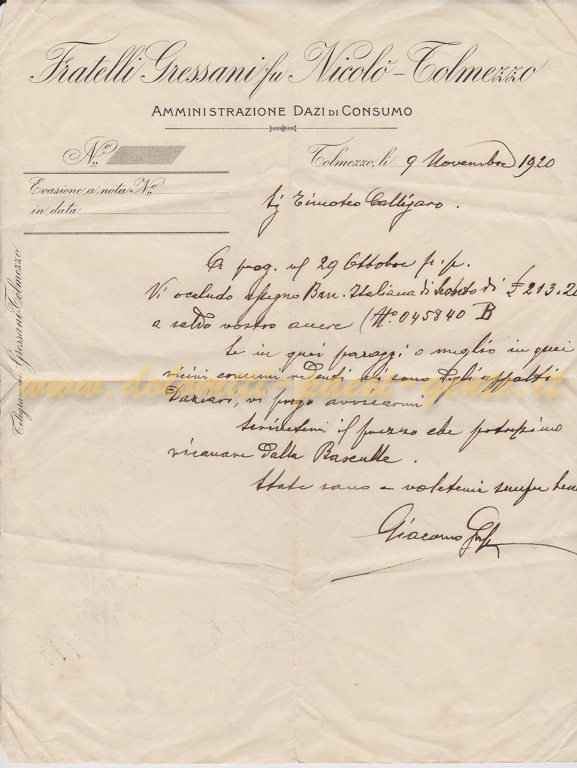 Fratelli Gressani fu Nicolò - Tolmezzo
AMMINISTRAZIONE DAZI DI CONSUMO
N.º
Tolmezzo, li 9 Novembre 1920
Evasione a nota Nº
in data
Telegrammi Gressani-Tolmezzo
Sig Timoteo Calligaro.
A preg. 29 Ottobre p.p.
Vi accludo assegno Ban. Italiana di Sconto di £ 213.20
a saldo vostro avere (Nº 045840 B
Se in quei paraggi o meglio in quei
vicini comuni vi sono degli appalti
Daziari, vi prego avvisarmi
Scrivetemi il prezzo che potressimo
ricavare dalla Basculle.
State sano e voletemi sempre bene
Giacomo
www.dolomiti-paesi-gente.it